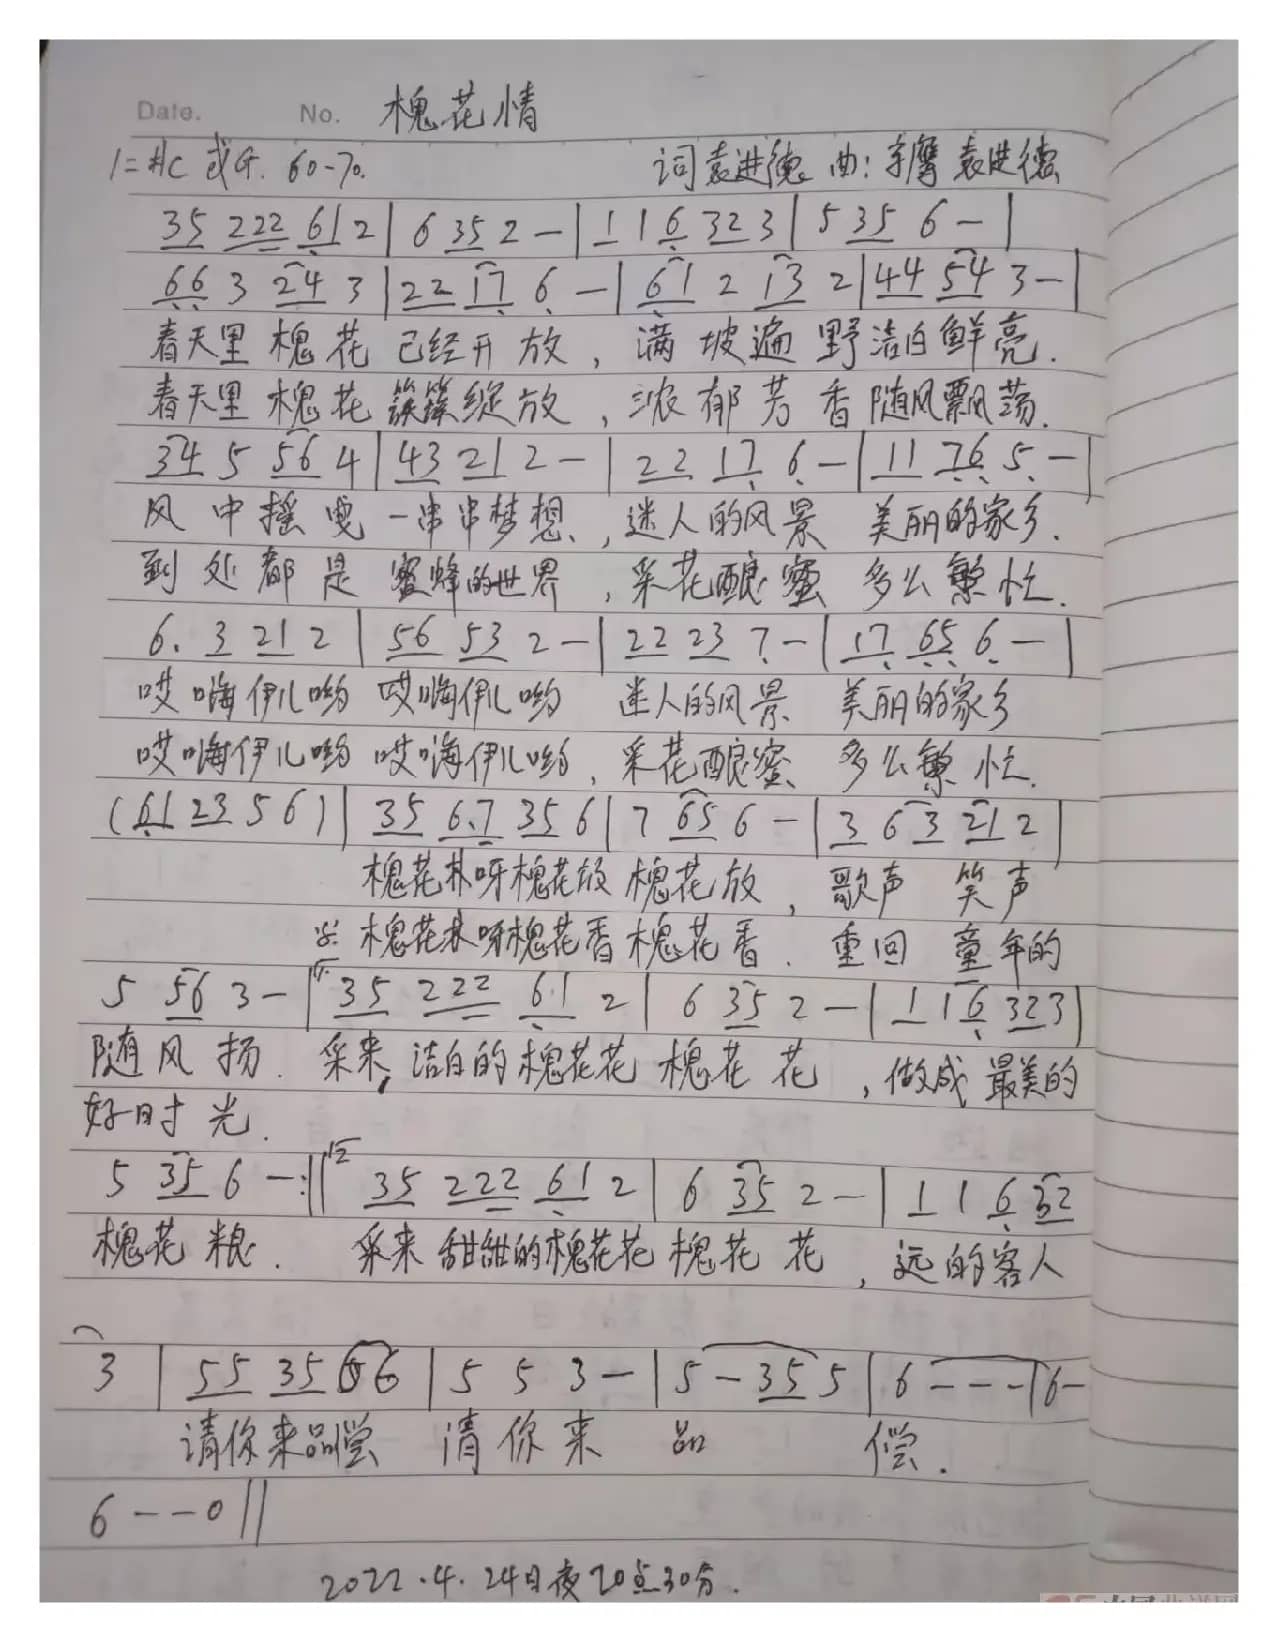 Date. No. 槐花情
1=#C 或G. 60-70. 词袁进德 曲: 袁进德
35 222 61 2 | 6 35 2 - | 1 1 6 32 3 | 5 35 6 - |
66 3 24 3 | 22 17 6 - | 61 2 13 2 | 44 54 3 - |
春天里 槐 花 已经开 放 , 满 坡 遍 野 洁白 鲜 亮 .
春天里 槐 花 簇簇绽放 , 浓 郁 芳 香 随风飘荡.
34 5 56 4 | 43 21 2 - | 22 17 6 - | 11 76 5 - |
风 中 摇 曳 一串串梦想、, 迷人的风景 美丽的家乡.
到 处 都 是 蜜蜂的世界 , 采花酿蜜 多么繁忙.
6. 3 21 2 | 56 53 2 - | 22 23 7 - | 17 65 6 - |
哎嗨伊儿哟 哎嗨伊儿哟 迷人的风景 美丽的家乡
哎嗨伊儿哟 哎嗨伊儿哟, 采花酿蜜 多么繁忙.
(61 23 5 6) | 35 6.7 35 6 | 7 65 6 - | 3 6 3 21 2 |
槐花林呀槐花放 槐花放 , 歌声 笑声
槐花林呀槐花香 槐花香 . 重回 童年的
5 56 3 - | 1. 35 222 61 2 | 6 35 2 - | 1 1 6 32 3 |
随风 扬 . 采来, 洁白的槐花花 槐花 花 , 做成 最美的
好时 光 .
5 35 6 - :|| 2 35 222 61 2 | 6 35 2 - | 1 1 6 32
槐花 粮 . 采来 甜甜的槐花花 槐花 花 , 远的客人
3 | 55 35 6 6 | 5 5 3 - | 5 - 35 5 | 6 - - - | 6 -
请你来品尝 请 你 来 品 偿 .
6 - - 0 ||
2022.4.24日夜20点30分.